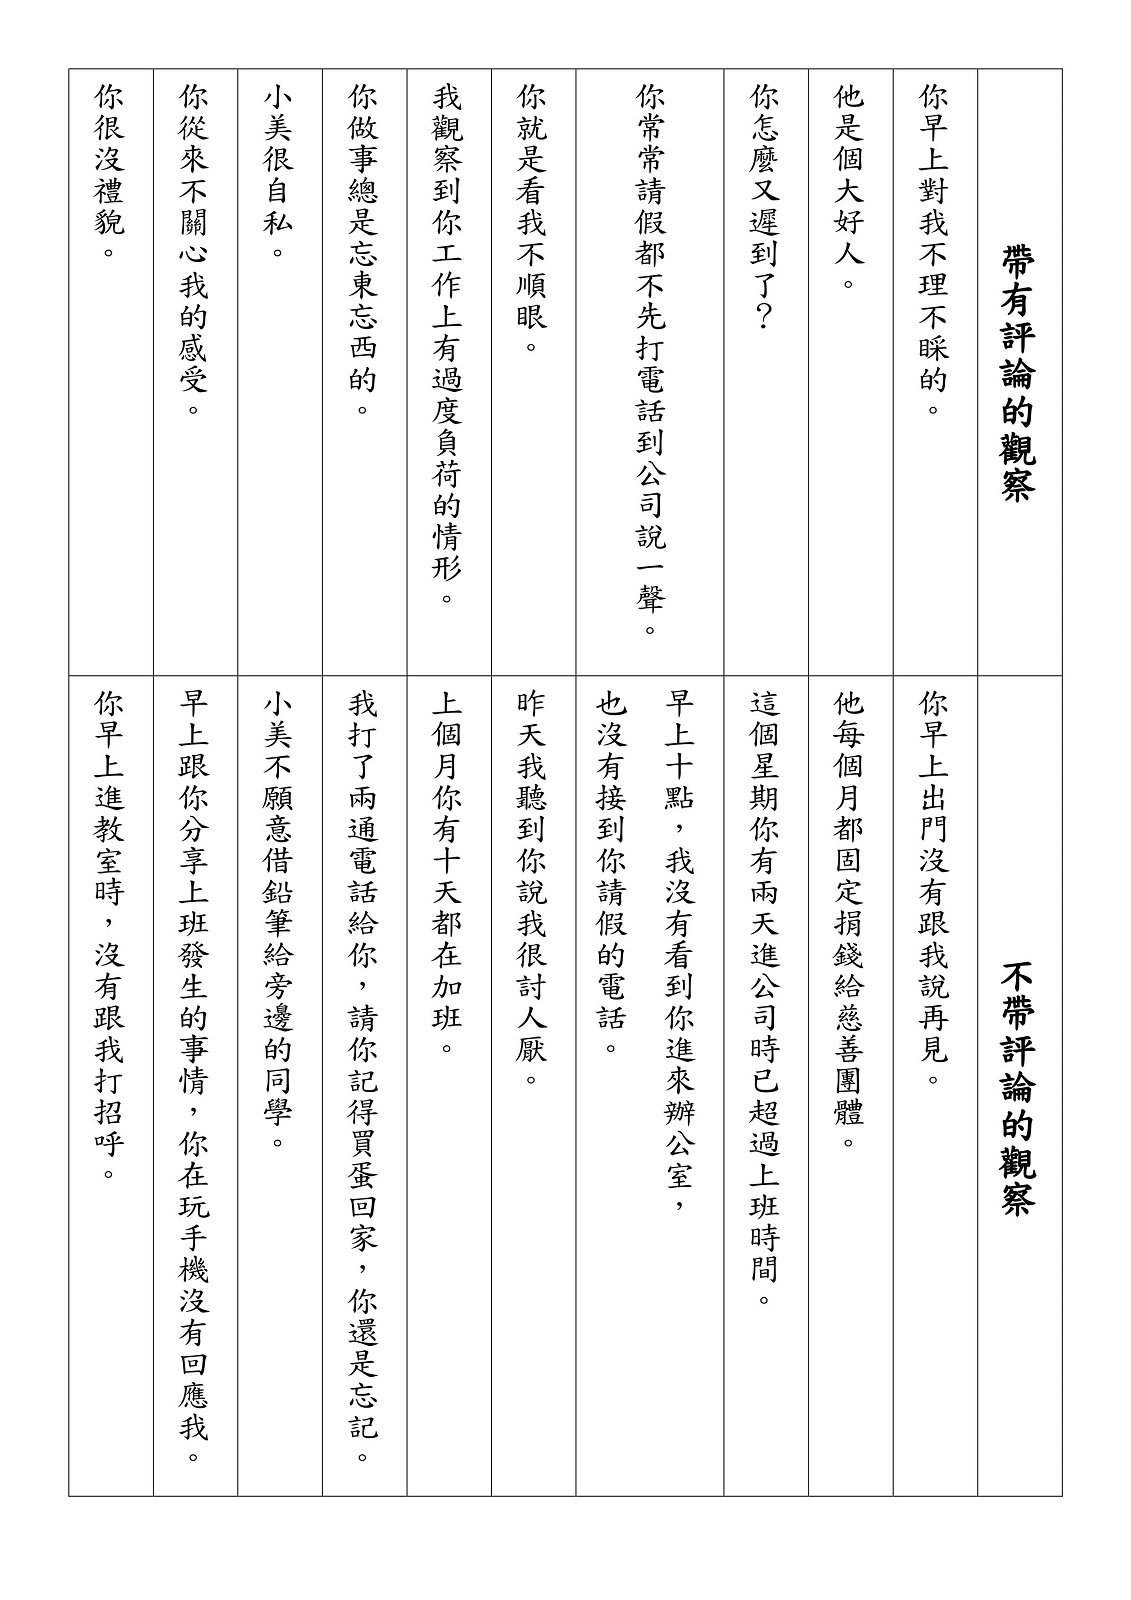 帶有評論的觀察
不帶評論的觀察
你早上對我不理不睬的。
你早上出門沒有跟我說再見。
他是個大好人。
他每個月都固定捐錢給慈善團體。
你怎麼又遲到了？
這個星期你有兩天進公司時已超過上班時間。
你常常請假都不先打電話到公司說一聲。
早上十點，我沒有看到你進來辦公室，
也沒有接到你請假的電話。
你就是看我不順眼。
昨天我聽到你說我很討人厭。
我觀察到你工作上有過度負荷的情形。
上個月你有十天都在加班。
你做事總是忘東忘西的。
我打了兩通電話給你，請你記得買蛋回家，你還是忘記。
小美很自私。
小美不願意借鉛筆給旁邊的同學。
你從來不關心我的感受。
早上跟你分享上班發生的事情，你在玩手機沒有回應我。
你很沒禮貌。
你早上進教室時，沒有跟我打招呼。